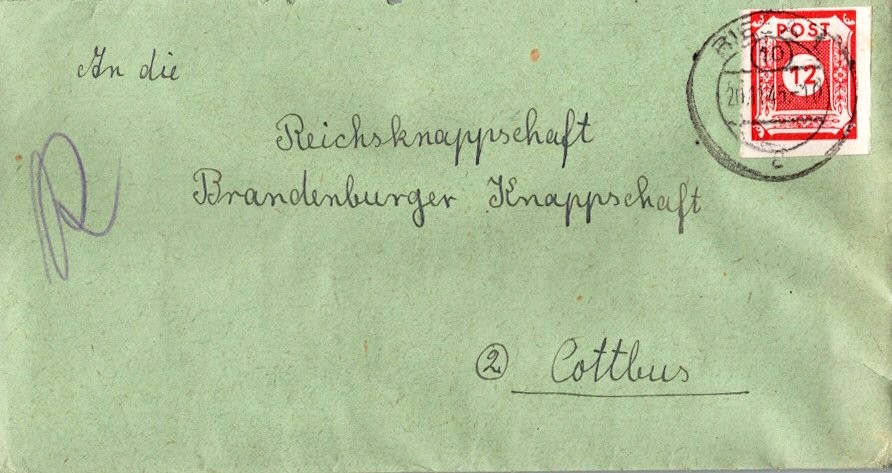 An die
Reichsknappschaft
Brandenburger Knappschaft
② Cottbus
POST
12
10
c